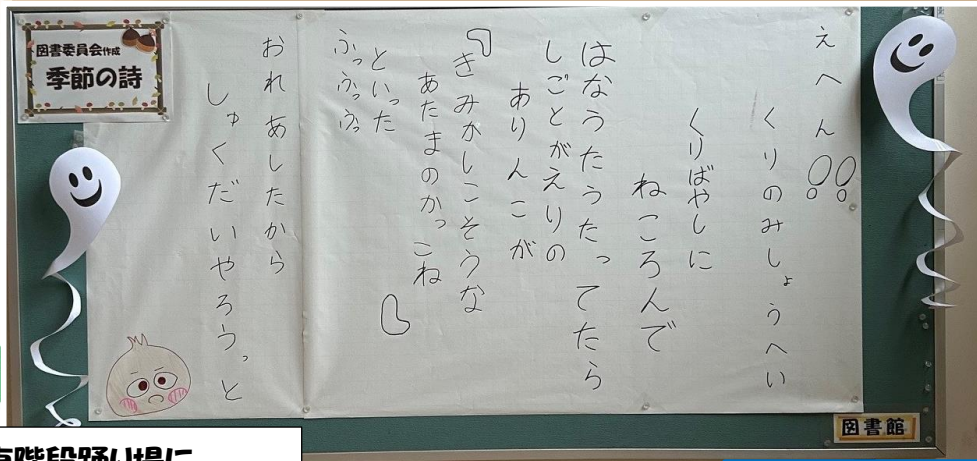 図書委員会作成
季節の詩
えへん!!
くりのみしょうへい
くりばやしに
ねころんで
はなうたうたってたら
しごとがえりの
ありんこが
「きみかしこそうな
あたまのかっこね」
といった
ふっふっふっ
おれあしたから
しゅくだいやろうっと
図書館